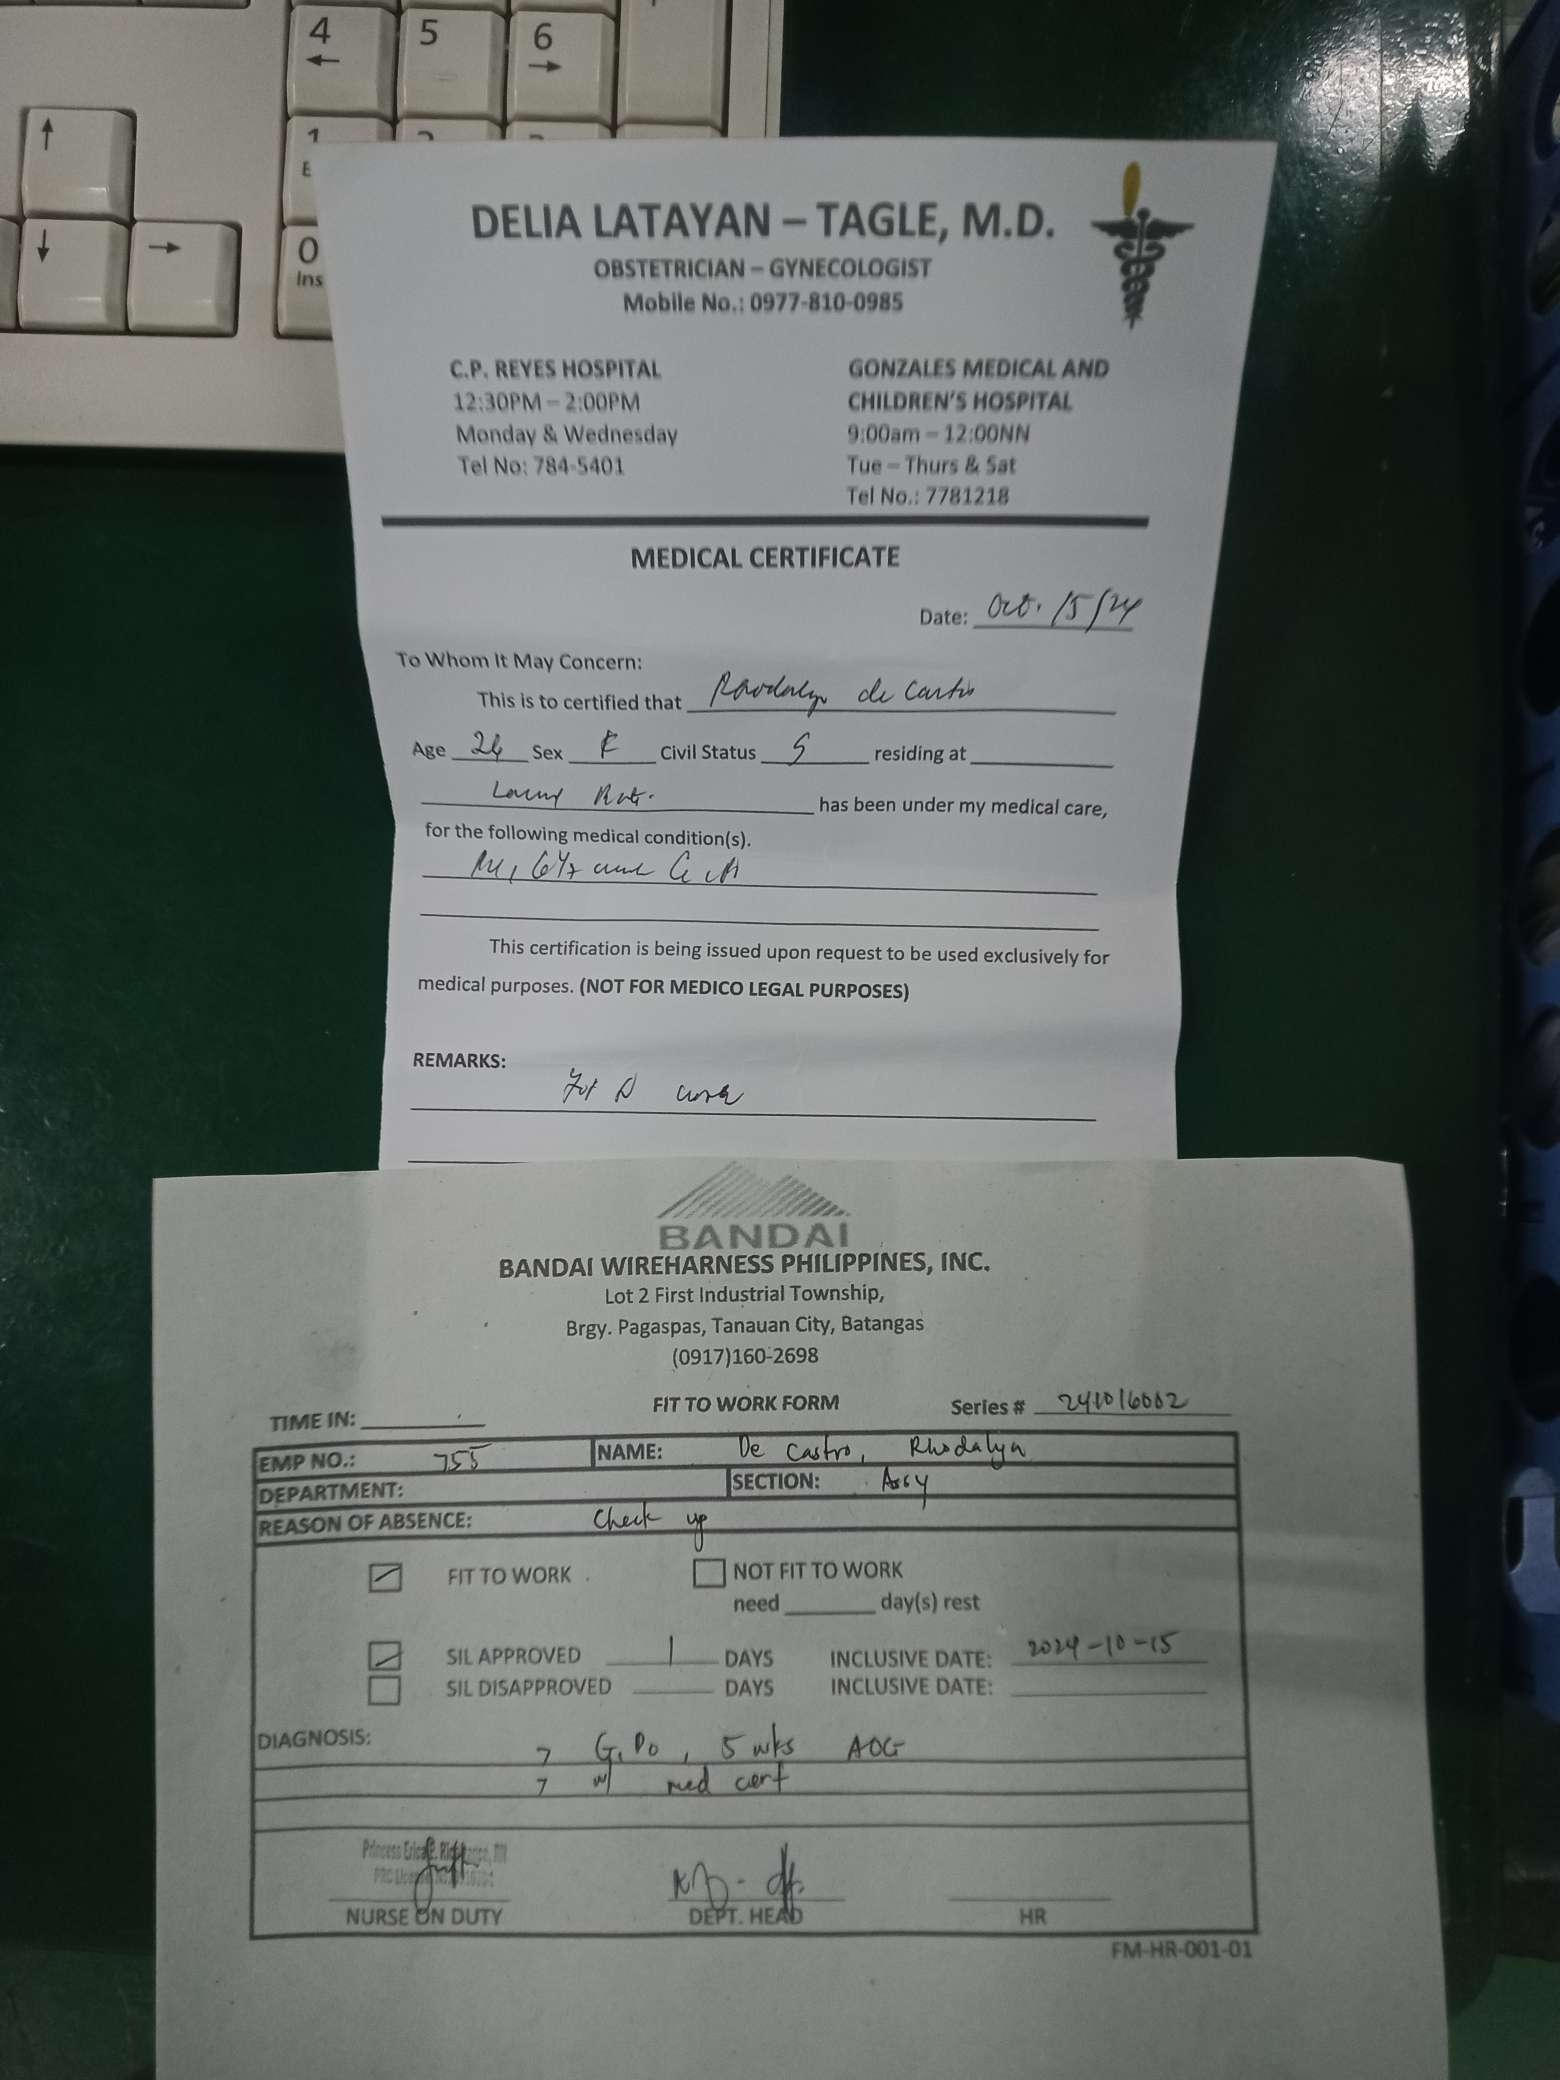 4
5
6
1
0
Ins
DELIA LATAYAN – TAGLE, M.D.
OBSTETRICIAN – GYNECOLOGIST
Mobile No.: 0977-810-0985
C.P. REYES HOSPITAL
12:30PM – 2:00PM
Monday & Wednesday
Tel No: 784-5401
GONZALES MEDICAL AND
CHILDREN'S HOSPITAL
9:00am – 12:00NN
Tue – Thurs & Sat
Tel No.: 7781218
MEDICAL CERTIFICATE
Date: Oct. 15/24
To Whom It May Concern:
This is to certified that Rhodalyn de Castro
Age Sex F Civil Status S residing at
has been under my medical care,
for the following medical condition(s).
This certification is being issued upon request to be used exclusively for
medical purposes. (NOT FOR MEDICO LEGAL PURPOSES)
REMARKS:
work
BANDAI
BANDAI WIREHARNESS PHILIPPINES, INC.
Lot 2 First Industrial Township,
Brgy. Pagaspas, Tanauan City, Batangas
(0917)160-2698
FIT TO WORK FORM
TIME IN:
Series # 241016002
EMP NO.: 755 NAME: De Castro, Rhodalyn
DEPARTMENT: SECTION: Assy
REASON OF ABSENCE: Check up
FIT TO WORK NOT FIT TO WORK
need day(s) rest
SIL APPROVED 1 DAYS INCLUSIVE DATE: 2024-10-15
SIL DISAPPROVED DAYS INCLUSIVE DATE:
DIAGNOSIS:
G1P0, 5 wks AOG
w/ med cert
Princess
NURSE ON DUTY DEPT. HEAD HR
FM-HR-001-01